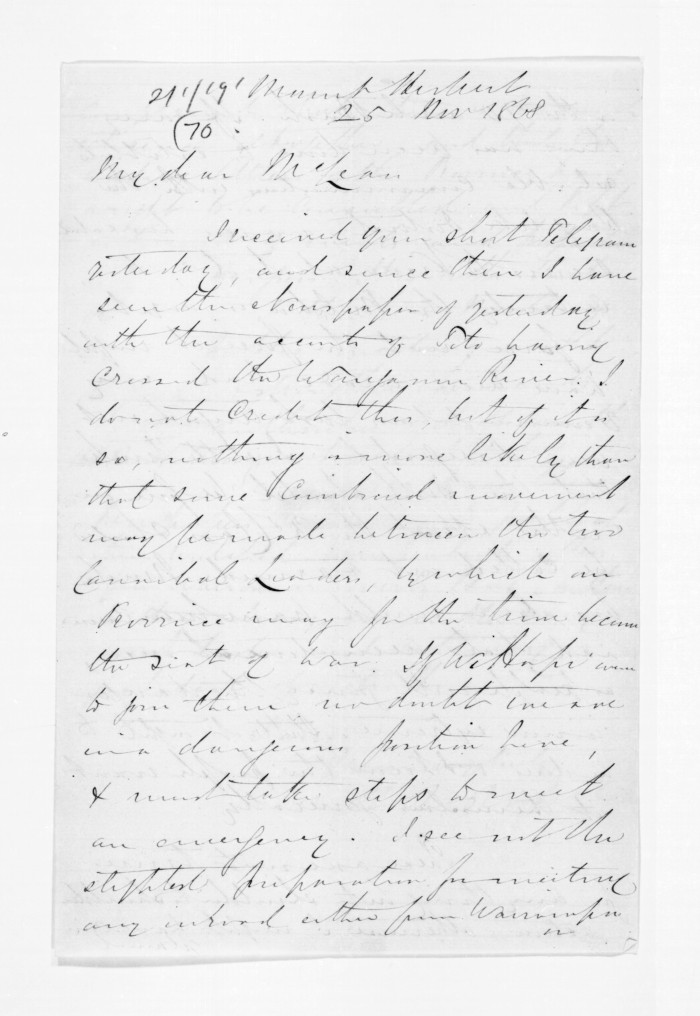 Mount Herbert
25 Nov 1868
(70.
My dear McLean
I received your short Telegram
yesterday, and since then I have
seen the Newspaper of yesterday,
with the accounts of Tito having
crossed the Wanganui River. I
do not credit this, but if it is
so, nothing is more likely than
that some combined movement
may be made between the two
Cannibal Leaders, by which our
Province may for the time become
the seat of war. If Wi Hapi were
to join them no doubt we are
in a dangerous position here,
& must take steps to meet
an emergency. I see not the
slightest preparation for meeting
any inroad either from
or